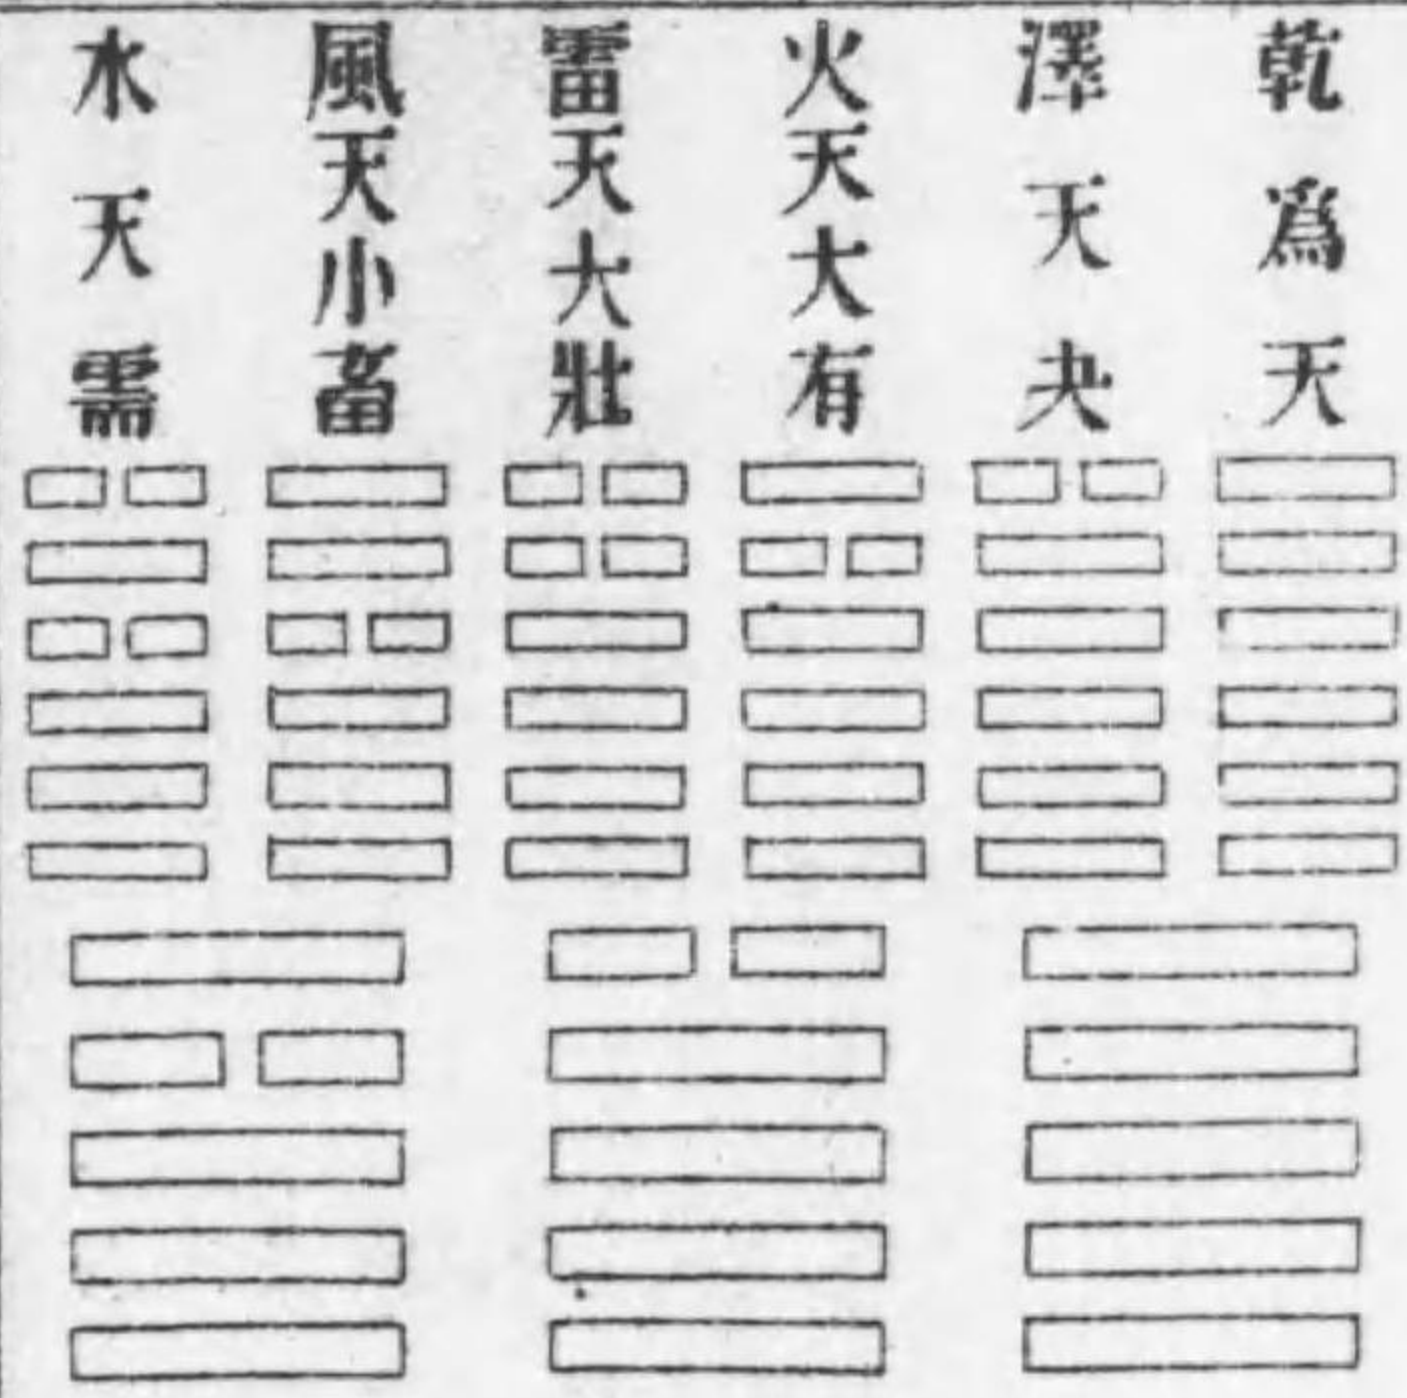 乾爲天
澤天夬
火天大有
雷天大壯
風天小畜
水天需